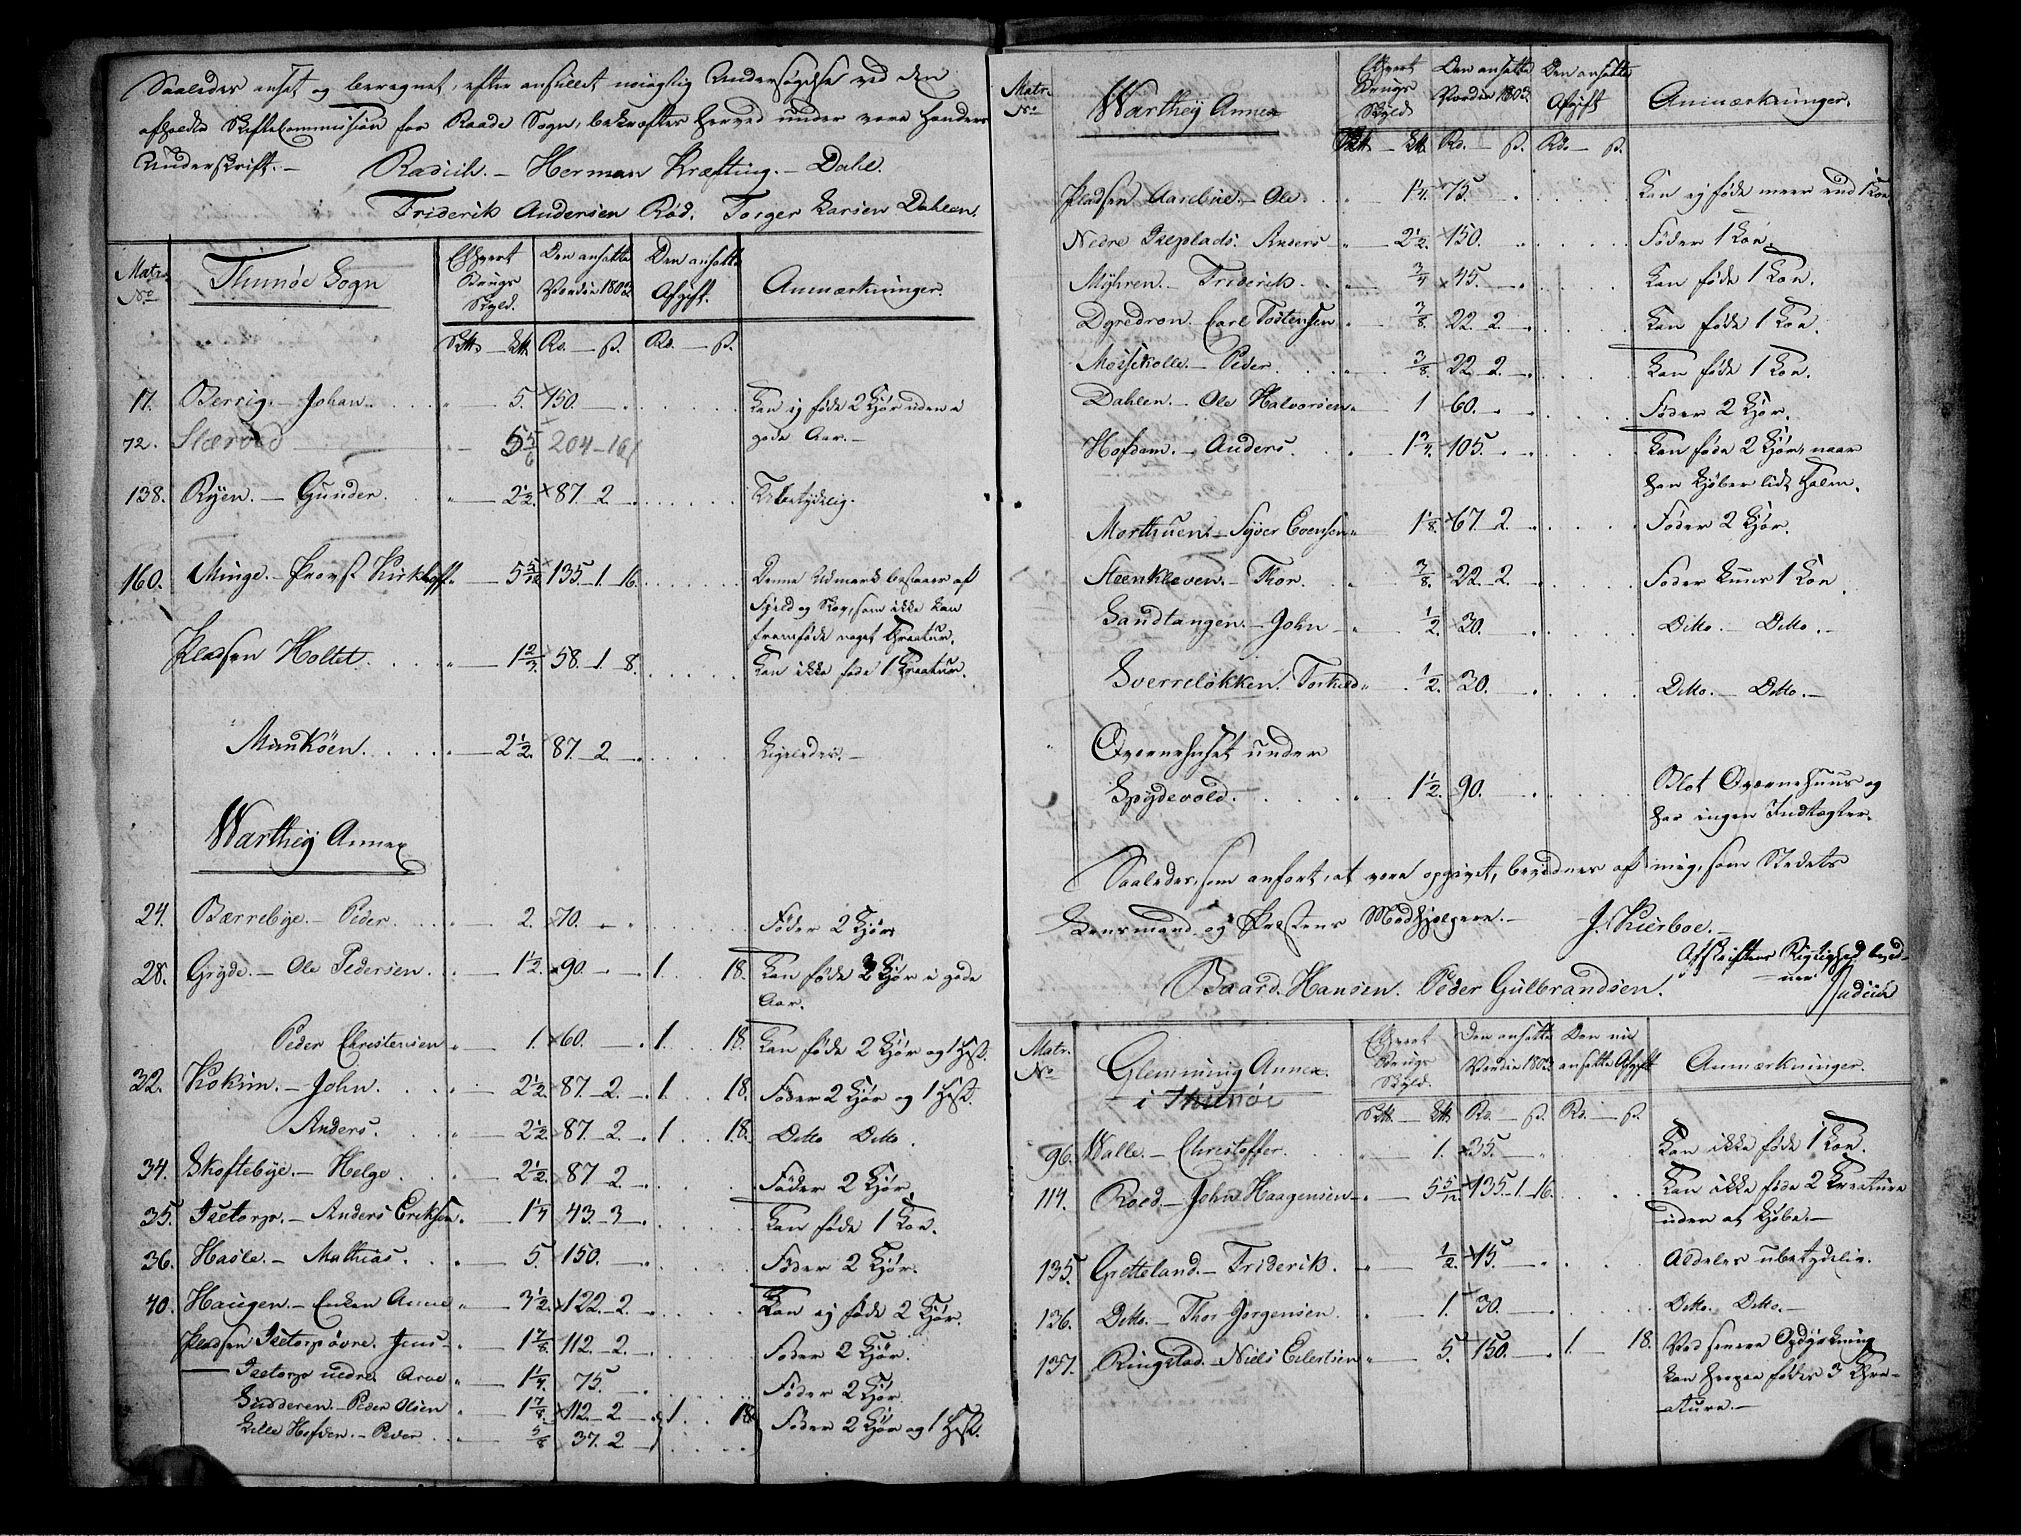 Saaledes anset og beregnet, efter anstillet nøiagtig Undersøgelse ved den
afholdte Commission for Raade Sogn, bekræftes herved under vore Hænders
Underskrift.—
Rasich. — Herman Kræfting. — Dahl.
Friderik Andersen Rød. Torger Larsen Dahlen.
Matr. No Thunøe Sogn Ethvert Brugs Skyld. Den ansatte Værdie 1803 Den ansatte Afgift. Anmærkninger.
Rd. — ß. Rd. — ß.
17. Berrig. — Johan. 5. 150. Kan ej føde 2 Kjør uden i
gode Aar.—
72. Slærved 5 5/6 204-16
138. Ryen. — Gunder. 2 1/2. 87. 2. Ubetydelig.
160. Minge. — Provst Kirkhoff 5 5/12 135. 1. 16. Denne Udmark bestaaer af
Fjeld og Skov, som ikke kan
fremføde noget Creatur.
Pladsen Holtet. 1 2/3. 58. 1. 8. Kan ikke føde 1 Kreatur.
Munköen. 2 1/2. 87. 2. Ligeledes.—
Warthey Annex
24. Bærrebye. — Peder. 2. 70. Føder 2 Kjør.
28. Gryde. — Ole Pedersen. 1 1/2. 90. 1. 18. Kan føde 2 Kjør i gode
Aar.
Peder Christensen 1. 60. 1. 18. Kan føde 2 Kjør og 1 Hest.
32. Kokim. — John. 2 1/2. 87. 2. 1. 18. Føder 2 Kjør og 1 Hest.
Anders. 2 1/2. 87. 2. 1. 18. Ditto Ditto.
34. Skoftebye. — Helge 2 1/2. 87. 2. Føder 2 Kjør.
35. Isetorp. — Anders Eriksen. 1 1/4 43. 3. Kan føde 1 Koe.
36. Hasle. — Mathias. 5. 150. Føder 2 Kjør.
40. Haugen. — Enken Anne 3 1/2. 122. 2. Kan ej føde 2 Kjør.
Pladsen Isetorp øvre. Jens 1 7/8. 112. 2. Føder 2 Kjør.
— Isetorp nedre. Arve 1 1/4. 75. Føder 2 Kjør
Gudderen. — Peder Olsen 1 7/8. 112. 2. 1. 18. Føder 2 Kjør og 1 Hest.
Lille Hofden. — Peder 5/8 37. 2
Matr. No Warthey Annex Ethvert Brugs Skyld Den ansatte Værdie 1803. Den ansatte Afgift Anmærkninger.
Rd. — ß. Rd. — ß.
Pladsen Aarebue. — Ole 1 1/4. 75. Kan ej føde meer end 1 Koe
Nedre Iseplads. Anders 2 1/2. 150. Føder 1 Koe.
Myhren. — Friderik. 3/4 45. Kan føde 1 Koe.
Dgredron. Carl Tostensen 3/8. 22. 2. Kan føde 1 Koe.
Mossekolle. — Peder. 3/8. 22. 2. Kan føde 1 Koe.
Dahlen. — Ole Halvorsen 1 60. Føder 2 Kjør.
Hofdam. — Anders. 1 3/4. 105. Kan føde 2 Kjør, naar
han kjøber lidt Halm.
Morthuen. — Syver Evensen 1 1/8. 67. 2. Føder 2 Kjør.
Steenkleven. — Thor. 3/8. 22. 2. Føder kuns 1 Koe
Sandtangen. — John 1/2. 30. Ditto. — Ditto.—
Sverreløkken. Torkild 1/2. 30. Ditto. — Ditto.—
Qværnehuset under
Spydevold. 1 1/2. 90. Blot Qværnehuus og
har ingen Indtægter.
Saaledes, som anført, at være opgivet, bevidner af mig, som Stedets
Lensmand og Præstens Medhjelpere.— J. Kierboe.—
Afskriftens Rigtighed bevid-
ner
Baard Hansen. Peder Gulbrandsen.
Matr. No Glemming Annex. i Thunøe Ethvert Brugs Skyld. Den ansatte Værdie 1803 Den nu ansatte Afgift Anmærkninger.
Rd. — ß. Rd. — ß.
96. Walle. — Christoffer. 1. 35. Kan ikke føde 1 Koe.
114. Roed. — John Haagensen 5 5/12 135. 1. 16. Kan ikke føde 2 Kreature
uden at kjøbe.—
135. Gretteland. — Friderik. 1/2. 15. Aldeles ubetydelig.
136. Ditto. — Thor Jorgensen. 1. 30. Ditto. Ditto.—
137. Ringstad. — Niels Eilertsen 5. 150. 1. 18. Ved senere Opdyrkning
kan herpaa fødes 3 Cre-
ature.—